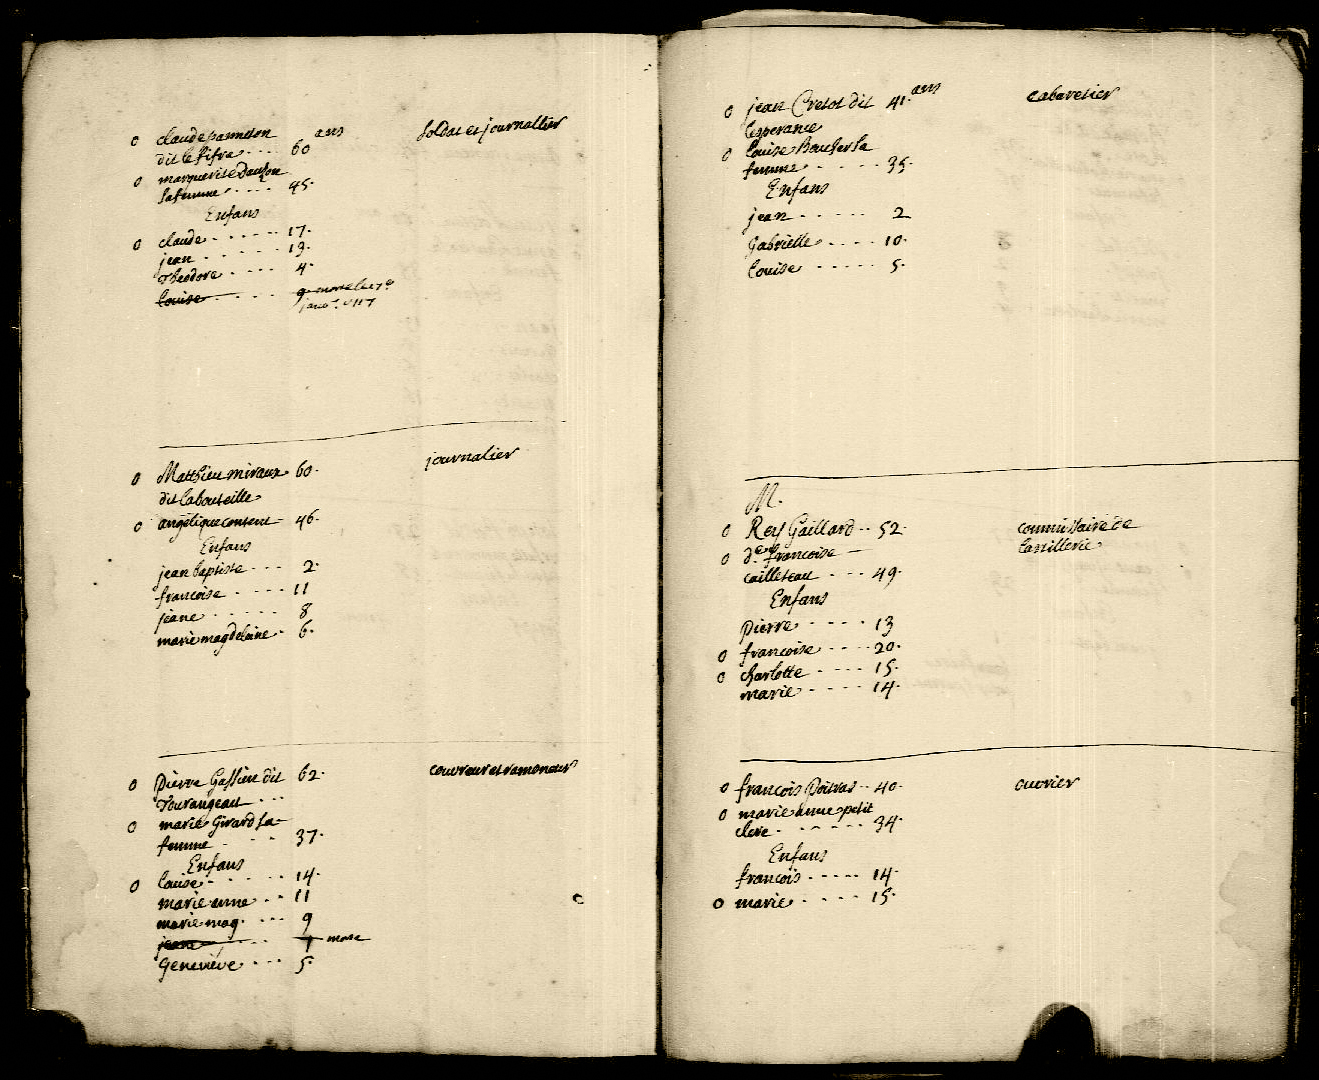 o claude panneton ans soldat et journallier
dit le fifre 60
o marguerite dauson
sa femme 45.
Enfans
o claude 17.
jean 13.
Theodore 4.
louise 9 morte le 17e
janv. 1717
o Matthieu miraux 60. journalier
dit labouteille
o angelique content 46.
Enfans
jean baptiste 2.
francoise 11
jeane 8
marie magdelaine 6.
o pierre Gassien dit 62. couvreur et ramoneur
Tourangeau
o marie Girard sa
femme 37.
Enfans
o louise 14.
marie anne 11
marie mag. 9
jeane 7 morte
Geneviéve 5.
o jean Cretot dit 41. ans cabaretier
lesperance
o louise Boucher sa
femme 35.
Enfans
jean 2
Gabrielle 10.
louise 5.
M.
o Rey Gaillard 52. commissaire de
lartillerie
o de francoise
cailleteau 49.
Enfans
pierre 13
o francoise 20.
o charlotte 15.
marie 14.
o francois Poitras 40. ouvrier
o marie anne petit
clere 34.
Enfans
francois 14.
o marie 15.